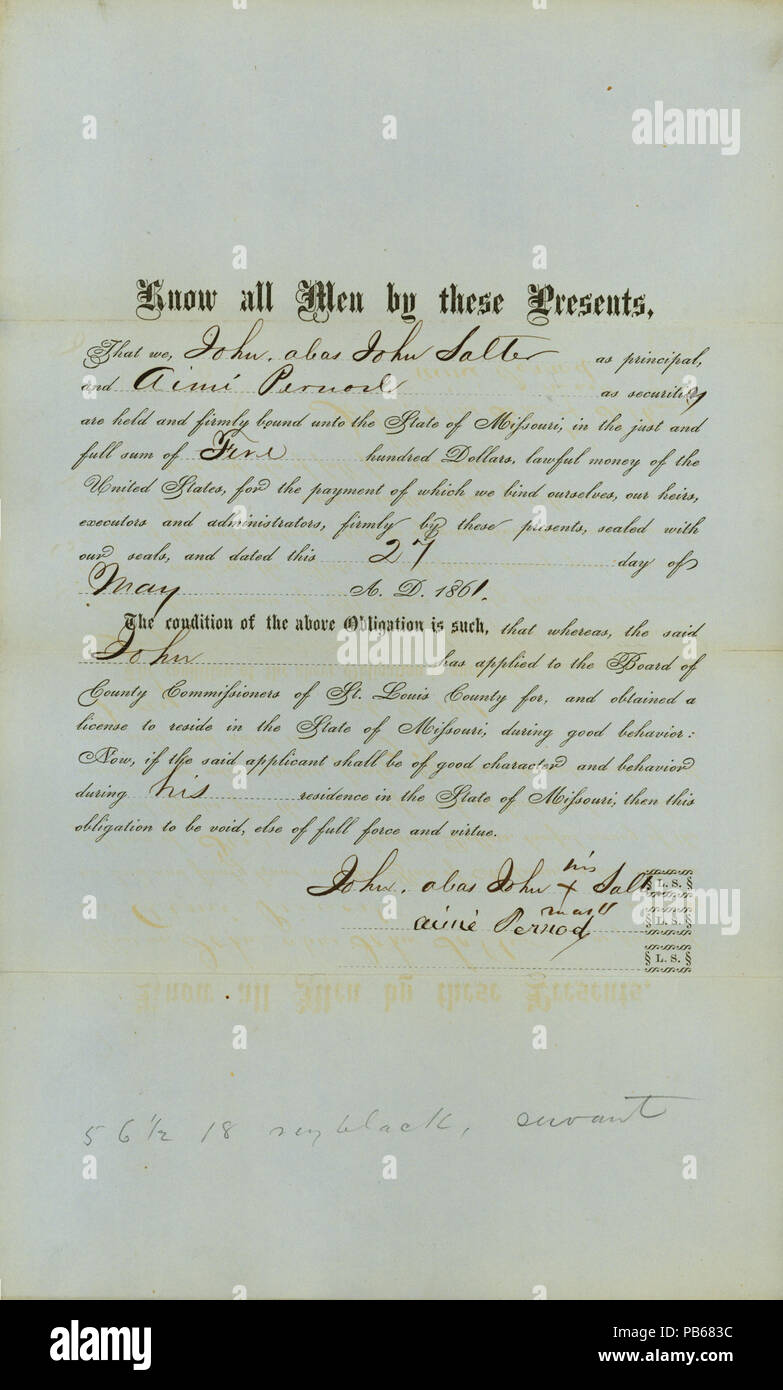 Know all Men by these Presents,
That we, John, alias John Salter as principal,
and Aimé Pernod as securities
are held and firmly bound unto the State of Missouri, in the just and
full sum of Five hundred Dollars, lawful money of the
United States, for the payment of which we bind ourselves, our heirs,
executors and administrators, firmly by these presents, sealed with
our seals, and dated this 27 day of
May A. D. 1861.
The condition of the above Obligation is such, that whereas, the said
John has applied to the Board of
County Commissioners of St. Louis County for, and obtained a
license to reside in the State of Missouri, during good behavior:
Now, if the said applicant shall be of good character and behavior
during his residence in the State of Missouri, then this
obligation to be void, else of full force and virtue.
his
John, alias John + Salt L. S.
mark
Aimé Pernod L. S.
L. S.
5 6 1/2 18 black, servant
alamy
a alamy stock photo
PB683C
www.alamy.com